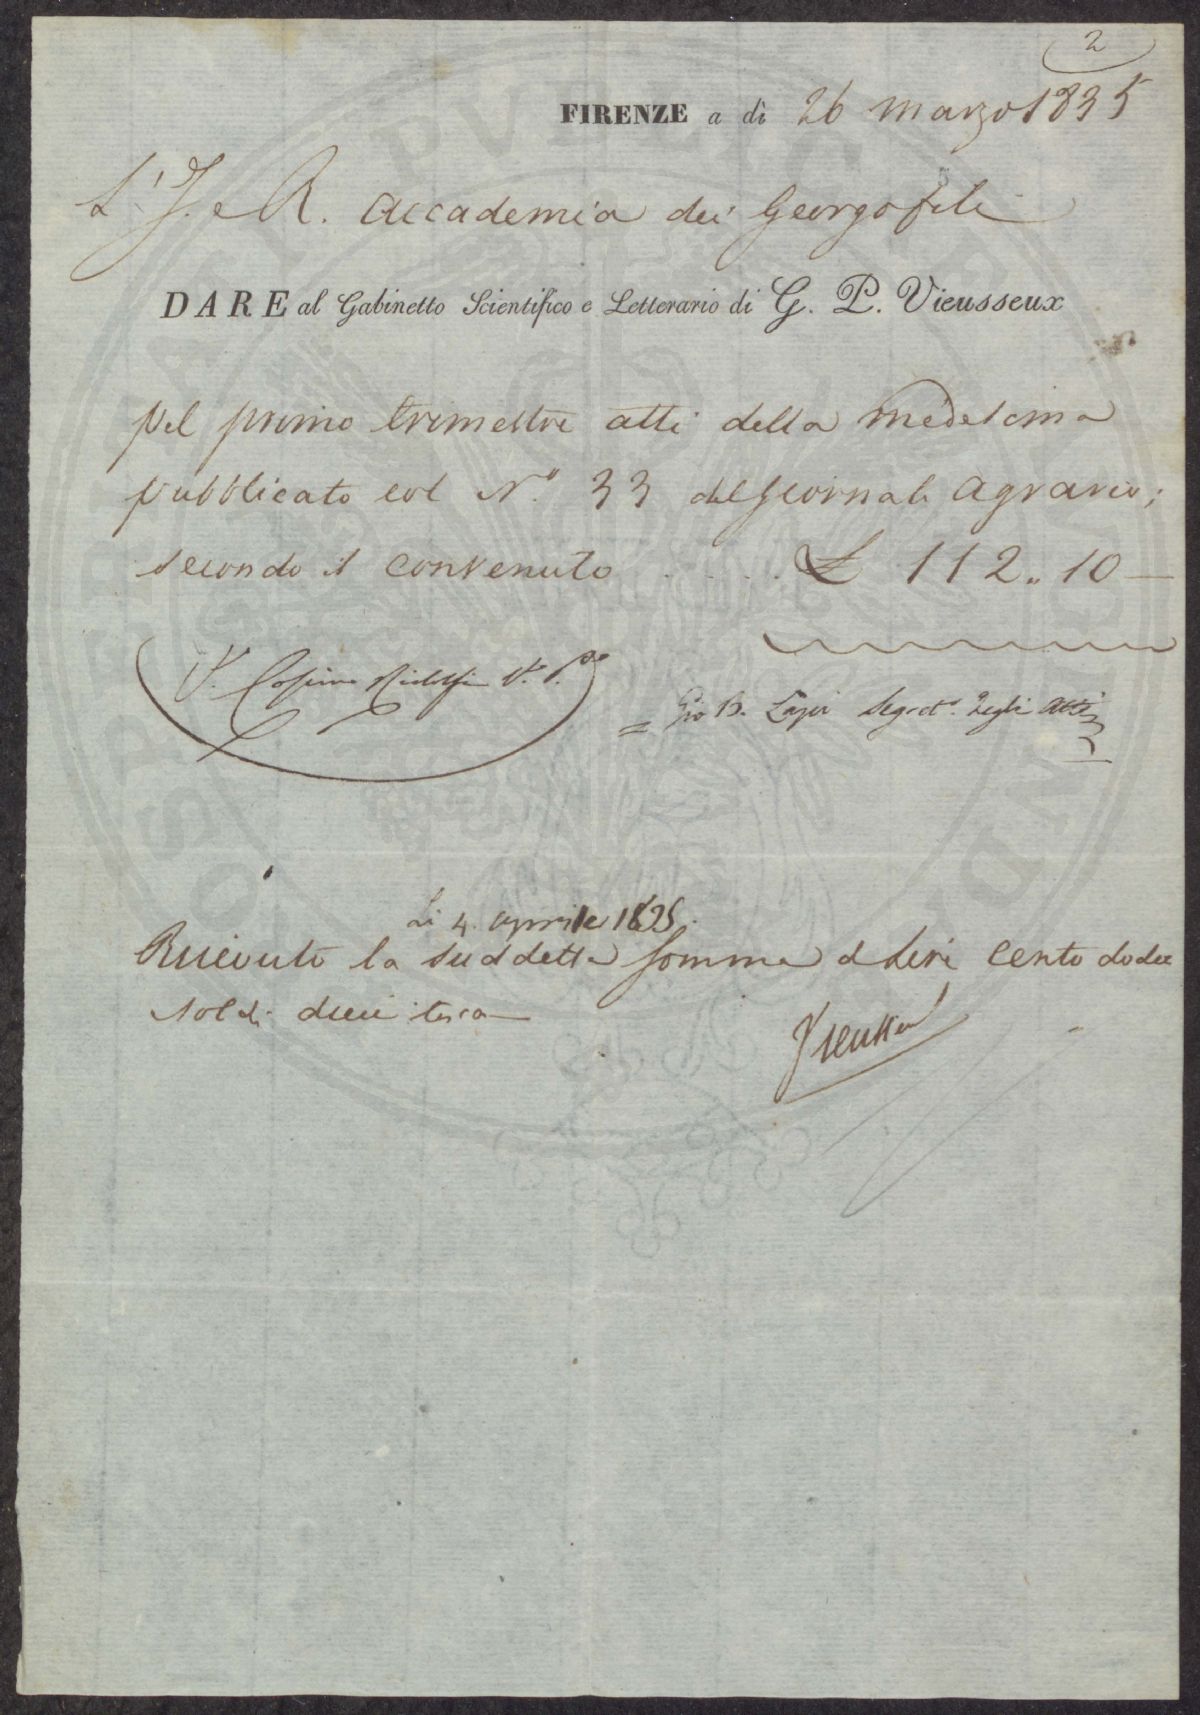 2
FIRENZE a dì 26 marzo 1835
L'I. e R. Accademia dei Georgofili
DARE al Gabinetto Scientifico e Letterario di G. P. Vieusseux
pel primo trimestre atti della medesima
pubblicato col N.° 33 del Giornale Agrario;
secondo il convenuto ..... £ 112.. 10 —
V. Cosimo Ridolfi V. P.
= Gio B. Lapi Segret°. degli Atti
Li 4. aprile 1835.
Ricevuto la suddetta somma di Lire cento dodici
soldi dieci
Vieusseux